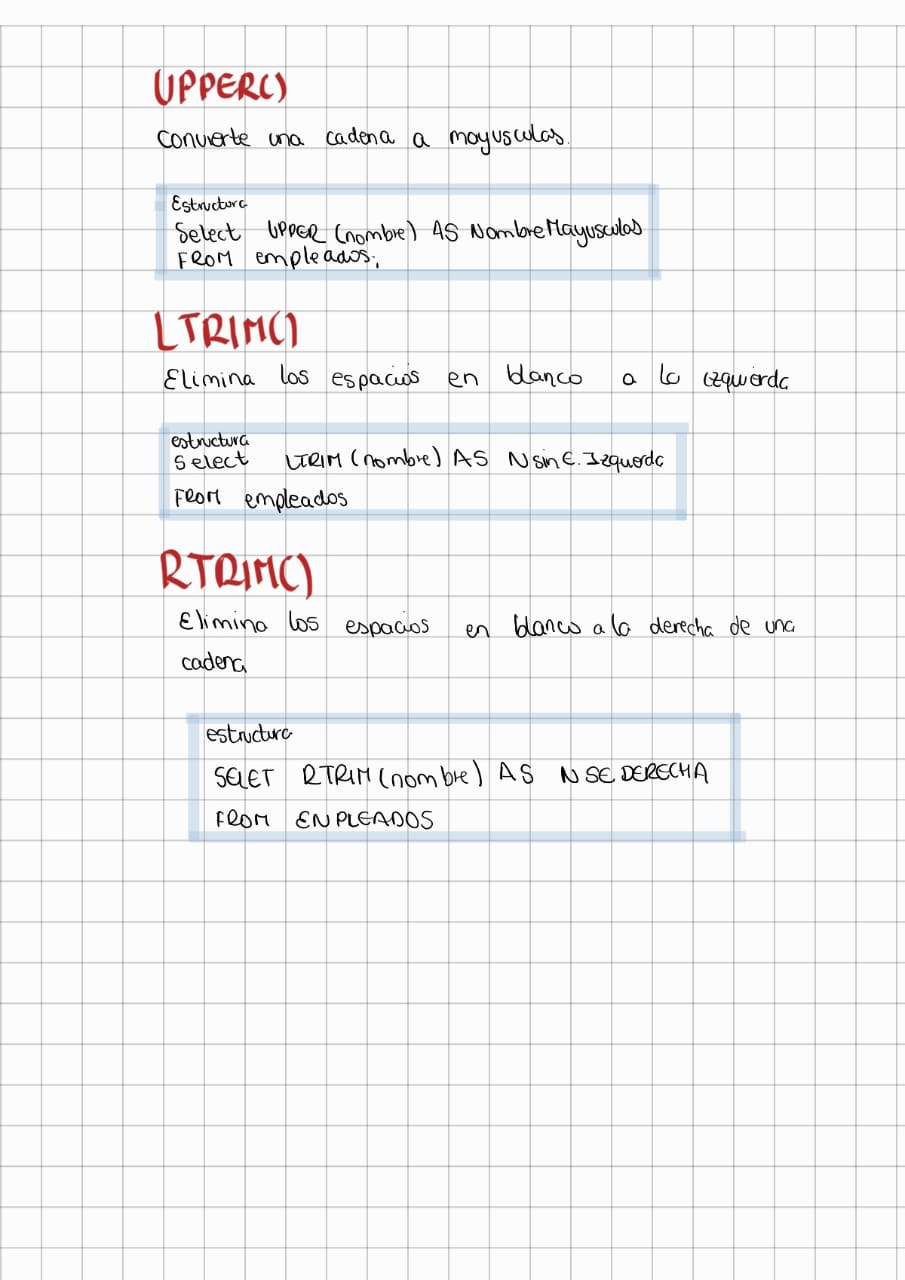 UPPER()
Convierte una cadena a mayusculas.
Estructura
Select UPPER (nombre) AS NombreMayusculas
FROM empleados;
LTRIM()
Elimina los espacios en blanco a la izquierda
estructura
Select LTRIM (nombre) AS NsinE.Izquierda
FROM empleados
RTRIM()
Elimina los espacios en blanco a la derecha de una
cadena
estructura
SELET RTRIM (nombre) AS NSEDERECHA
FROM ENPLEADOS